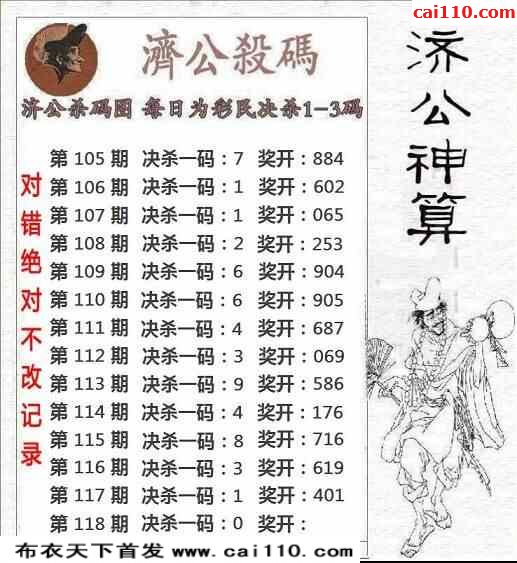 cai110.com
濟公殺碼
济公杀码图 每日为彩民决杀1-3码
济公神算
对错绝对不改记录
第 105 期 决杀一码：7 奖开：884
第 106 期 决杀一码：1 奖开：602
第 107 期 决杀一码：1 奖开：065
第 108 期 决杀一码：2 奖开：253
第 109 期 决杀一码：6 奖开：904
第 110 期 决杀一码：6 奖开：905
第 111 期 决杀一码：4 奖开：687
第 112 期 决杀一码：3 奖开：069
第 113 期 决杀一码：9 奖开：586
第 114 期 决杀一码：4 奖开：176
第 115 期 决杀一码：8 奖开：716
第 116 期 决杀一码：3 奖开：619
第 117 期 决杀一码：1 奖开：401
第 118 期 决杀一码：0 奖开：
布衣天下首发 www.cai110.com